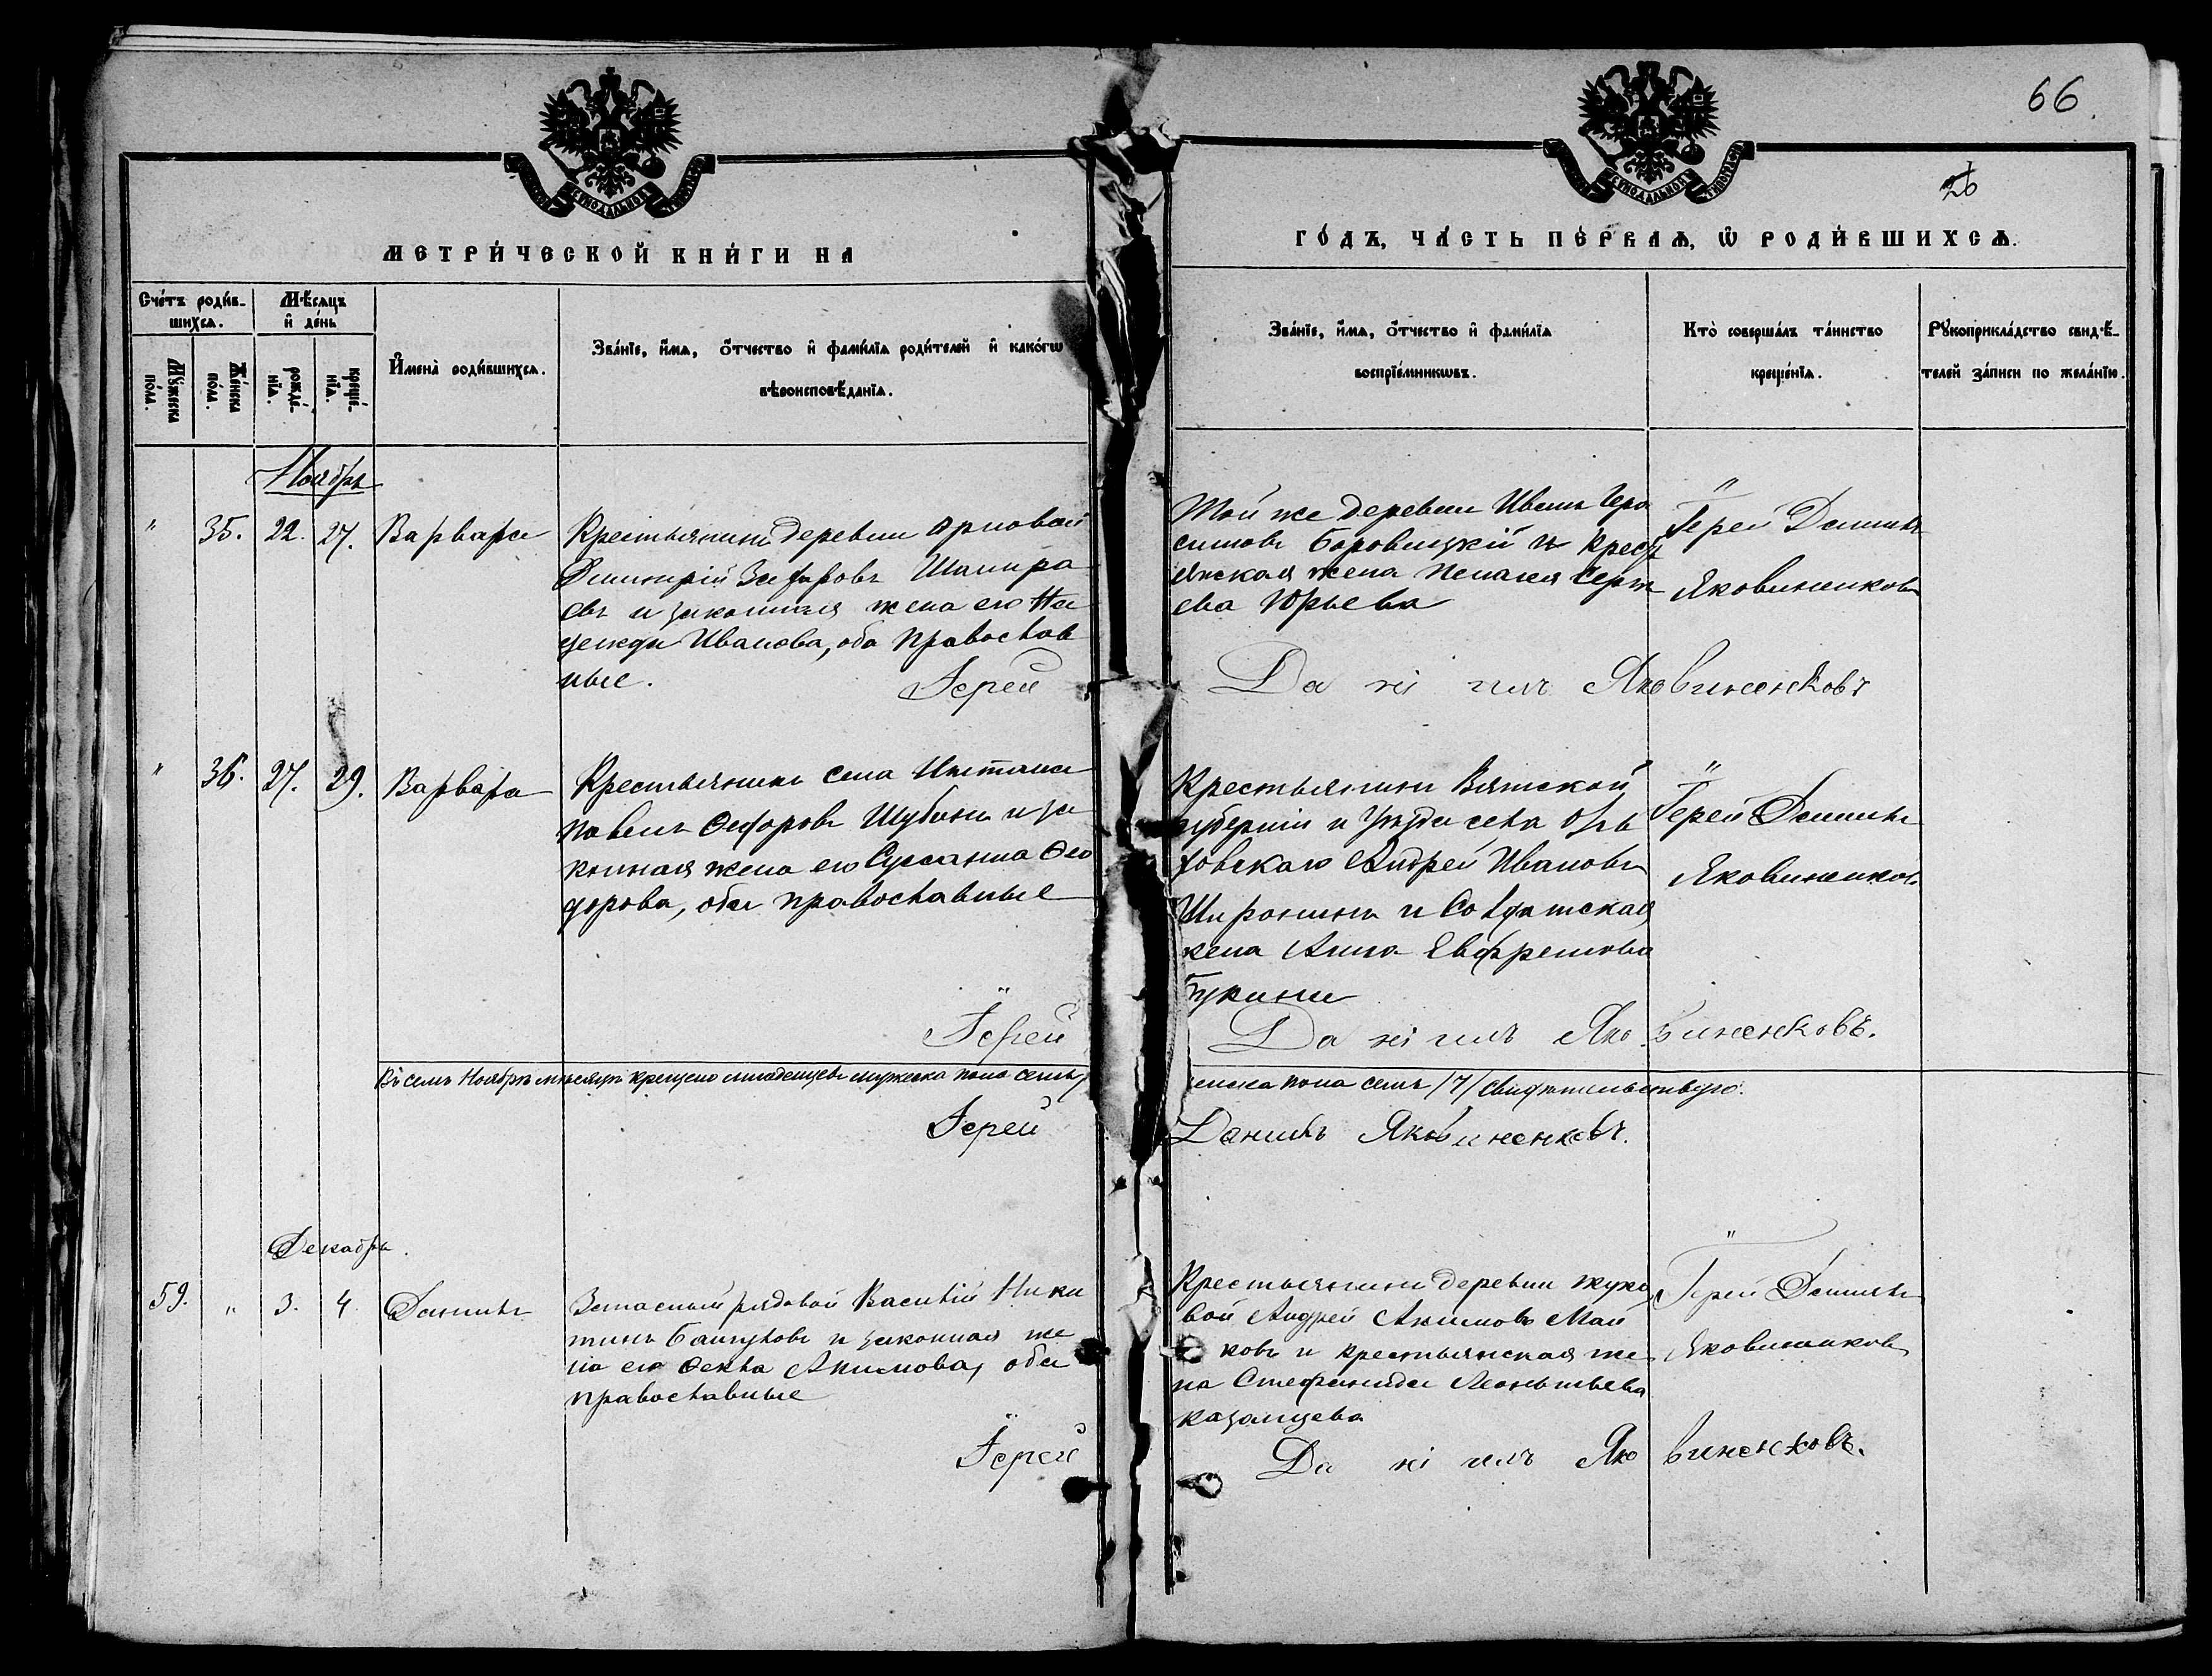 66.
26
СУНОДАЛЬНОЙ
СУНОДАЛЬНОЙ
МЕТРИ́ЧЕСКОЙ КНИ́ГИ НА
ГО́ДЪ, ЧА́СТЬ ПЕ́РВАѦ, Ѡ РОДИ́ВШИХСѦ.
Сче́тъ роди́в-
шихсѧ.
Мѣ́сѧцъ
и де́нь
Мꙋ́жеска
по́ла.
Же́нска
по́ла.
рожде́-
нїѧ.
креще́-
нїѧ.
Имена̀ роди́вшихсѧ.
Зва́нїе, и́мѧ, о́тчество и фами́лїѧ роди́телей и како́гѡ
вѣроисповѣ́данїѧ.
Зва́нїе, и́мѧ, о́тчество и фами́лїѧ
воспрїе́мникѡвъ.
Кто̀ соверша́лъ та́инство
креще́нїѧ.
Рꙋкоприкла́дство свидѣ́-
телей за́писи по жела́нїю.
Ноябрь
" 35. 22. 27. Варвара
Крестьянинъ деревни Орловой
Димитрій
евъ и законная жена его На
дежда Ивановa, оба православ
ные.
Той же деревни Иванъ Гера
симовъ Боровицкій и крестъ
янская жена Пелагея Серге
ева Юрьева
Іерей Даниилъ
Яковиненковъ
Іерей Даніилъ Яковиненковъ
" 36. 27. 29. Варвара
Крестьянинъ села
Павелъ Ѳедоровъ Шубинъ и за
конная жена его Сусанна Ѳео
дорова, оба православные
Крестьянинъ Вятской
губерніи и уѣзда села
Андрей Ивановъ
Широнинъ и Солдатская
жена Анна Евфремова
Іерей Даниилъ
Яковиненковъ
Іерей Даніилъ Яковиненковъ.
Въ семъ Ноябрѣ мѣсяцѣ крещено младенцевъ мужеска пола семь,
женска пола семь /7/ свидѣтельствую.
Іерей Даниилъ Яковиненковъ.
Декабрь.
59. " 3. 4. Даниилъ
Запасный рядовой Василій Ники
тинъ и законная же
на его Ѳекла Акимова, оба
православные
Крестьянинъ деревни Жуко
вой Андрей Акимовъ Май
ковъ и крестьянская же
на Стефанида Леонтьева
Казанцева
Іерей Даниилъ
Яковиненковъ
Іерей Даніилъ Яковиненковъ.